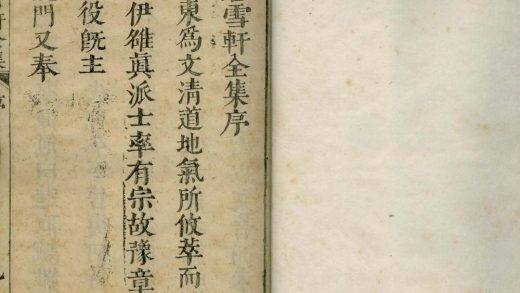 雪軒全集序
東為文清道地氣所攸萃而
伊雒真派士率有宗故豫章
役既主
門又奉